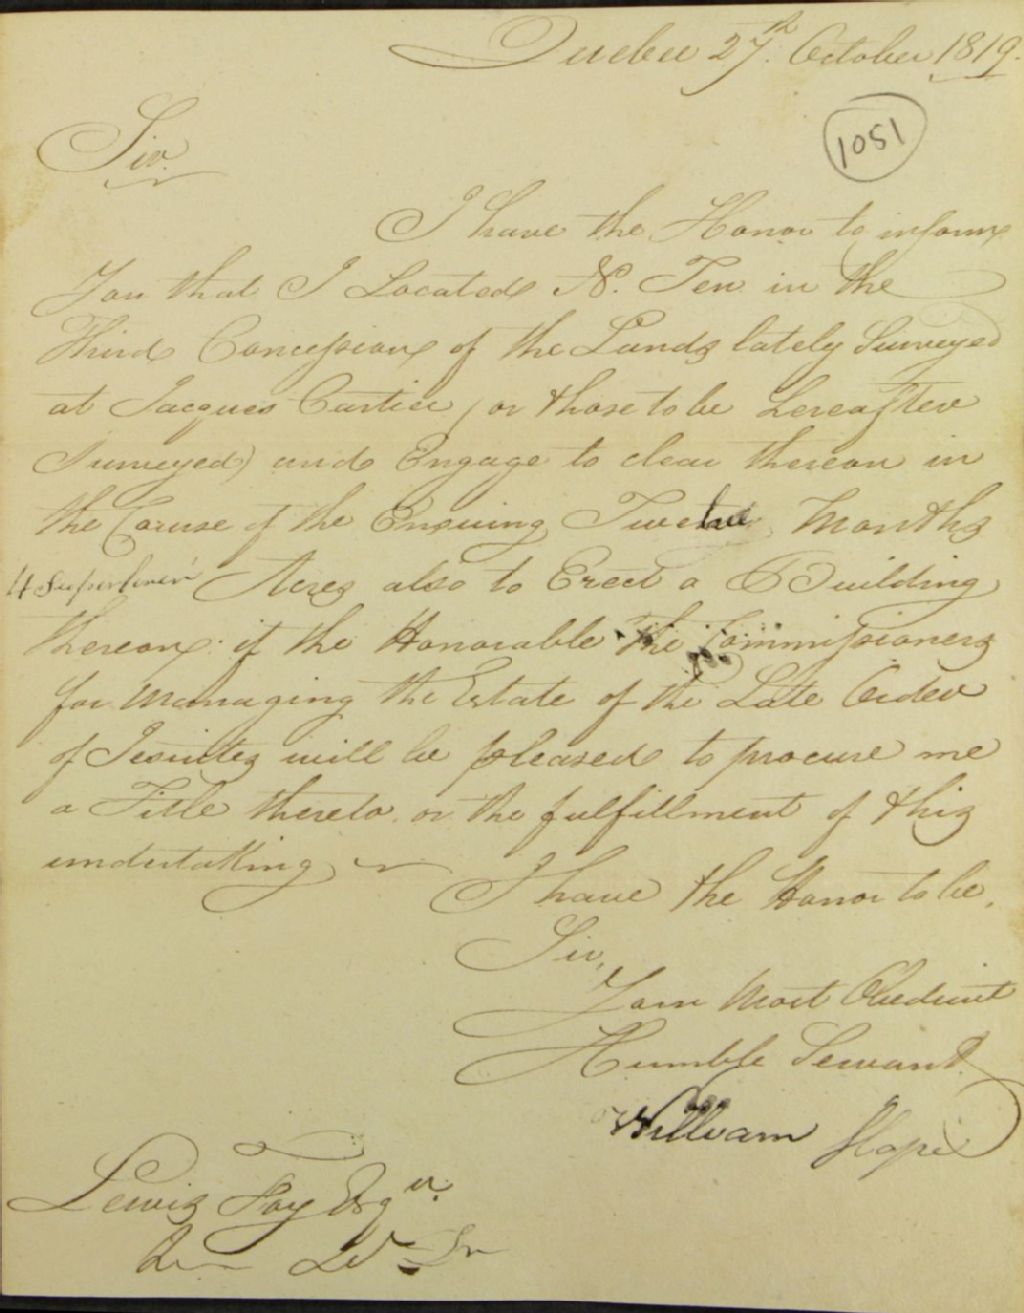 Quebec 27th. October 1819.
1051
Sir.
I have the Honor to inform
You that I Located N. Ten in the
Third Concession of the Lands lately Surveyed
at Jacques Cartier (or those to be hereafter
Surveyed) and Engage to clear thereon in
the Course of the Ensuing Twelve Months
4 Superficial Acres also to Erect a Building
thereon: if the Honorable The Commissioners
for Managing the Estate of the Late Order
of Jesuites will be pleased to procure me
a Title thereto on the fulfillment of this
undertaking
I have the Honor to be,
Sir,
Your Most Obedient
Humble Servant
William
Lewis Foy Esqr.